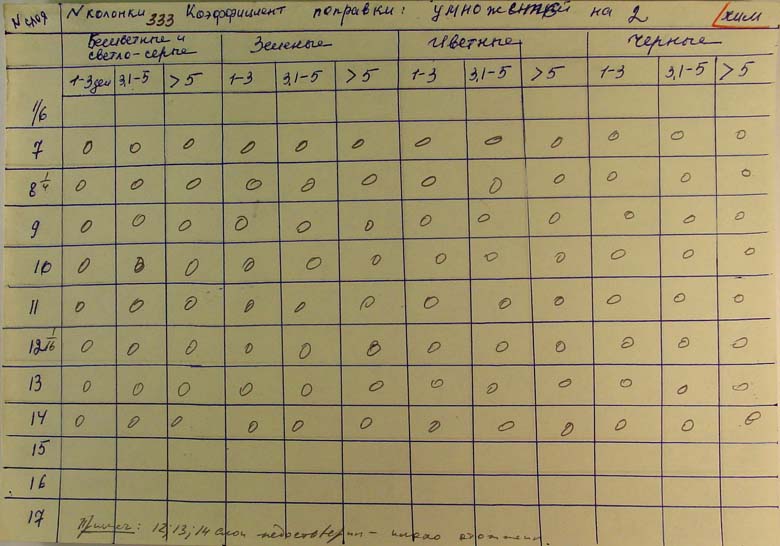 N слоя N колонки 333 Коэффициент поправки: умножен на 2 хим
Бесцветные и светло-серые Зеленые Цветные Черные
1-3 3,1-5 >5 1-3 3,1-5 >5 1-3 3,1-5 >5 1-3 3,1-5 >5
1/6
7 0 0 0 0 0 0 0 0 0 0 0 0
8 1/4 0 0 0 0 0 0 0 0 0 0 0 0
9 0 0 0 0 0 0 0 0 0 0 0 0
10 0 0 0 0 0 0 0 0 0 0 0 0
11 0 0 0 0 0 0 0 0 0 0 0 0
12 1/16 0 0 0 0 0 0 0 0 0 0 0 0
13 0 0 0 0 0 0 0 0 0 0 0 0
14 0 0 0 0 0 0 0 0 0 0 0 0
15
16
17
Примеч: 12; 13; 14 слои недостоверны - плохо